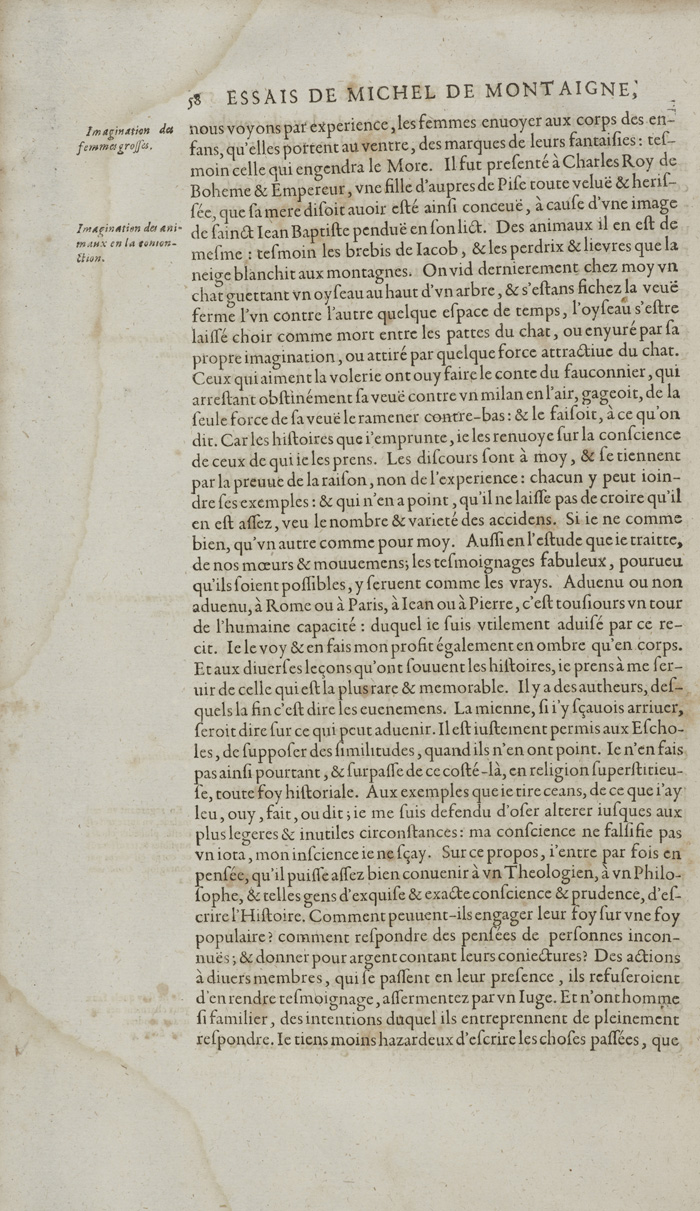 58 ESSAIS DE MICHEL DE MONTAIGNE,
Imagination des
femmes grosses.
nous voyons par experience, les femmes enuoyer aux corps des en-
fans, qu'elles portent au ventre, des marques de leurs fantaiſies : teſ-
moin celle qui engendra le More. Il fut preſenté à Charles Roy de
Boheme & Empereur, vne fille d'aupres de Piſe toute veluë & heriſ-
ſée, que ſa mere diſoit auoir eſté ainſi conceuë, à cauſe d'vne image
Imagination des ani-
maux en la conion-
ction.
de ſainct Iean Baptiſte penduë en ſon lict. Des animaux il en eſt de
meſme : teſmoin les brebis de Iacob, & les perdrix & lievres que la
neige blanchit aux montagnes. On vid dernierement chez moy vn
chat guettant vn oyſeau au haut d'vn arbre, & s'eſtans fichez la veuë
ferme l'vn contre l'autre quelque eſpace de temps, l'oyſeau s'eſtre
laiſſé choir comme mort entre les pattes du chat, ou enyuré par ſa
propre imagination, ou attiré par quelque force attractiue du chat.
Ceux qui aiment la volerie ont ouy faire le conte du fauconnier, qui
arreſtant obſtinément ſa veuë contre vn milan en l'air, gageoit, de la
ſeule force de ſa veuë le ramener contre-bas : & le faiſoit, à ce qu'on
dit. Car les hiſtoires que i'emprunte, ie les renuoye ſur la conſcience
de ceux de qui ie les prens. Les diſcours ſont à moy, & ſe tiennent
par la preuue de la raiſon, non de l'experience : chacun y peut ioin-
dre ſes exemples : & qui n'en a point, qu'il ne laiſſe pas de croire qu'il
en eſt aſſez, veu le nombre & varieté des accidens. Si ie ne comme
bien, qu'vn autre comme pour moy. Auſſi en l'eſtude que ie traitte,
de nos mœurs & mouuemens; les teſmoignages fabuleux, pourueu
qu'ils ſoient poſſibles, y ſeruent comme les vrays. Aduenu ou non
aduenu, à Rome ou à Paris, à Iean ou à Pierre, c'eſt touſiours vn tour
de l'humaine capacité : duquel ie ſuis vtilement aduiſé par ce re-
cit. Ie le voy & en fais mon profit également en ombre qu'en corps.
Et aux diuerſes leçons qu'ont ſouuent les hiſtoires, ie prens à me ſer-
uir de celle qui eſt la plus rare & memorable. Il y a des autheurs, deſ-
quels la fin c'eſt dire les euenemens. La mienne, ſi i'y ſçauois arriuer,
ſeroit dire ſur ce qui peut aduenir. Il eſt iuſtement permis aux Eſcho-
les, de ſuppoſer des ſimilitudes, quand ils n'en ont point. Ie n'en fais
pas ainſi pourtant, & ſurpaſſe de ce coſté-là, en religion ſuperſtitieu-
ſe, toute foy hiſtoriale. Aux exemples que ie tire ceans, de ce que i'ay
leu, ouy, fait, ou dit; ie me ſuis defendu d'oſer alterer iuſques aux
plus legeres & inutiles circonſtances : ma conſcience ne falſifie pas
vn iota, mon inſcience ie ne ſçay. Sur ce propos, i'entre par fois en
penſée, qu'il puiſſe aſſez bien conuenir à vn Theologien, à vn Philo-
ſophe, & telles gens d'exquiſe & exacte conſcience & prudence, d'eſ-
crire l'Hiſtoire. Comment peuuent-ils engager leur foy ſur vne foy
populaire? comment reſpondre des penſées de perſonnes incon-
nuës; & donner pour argent contant leurs coniectures? Des actions
à diuers membres, qui ſe paſſent en leur preſence, ils refuſeroient
d'en rendre teſmoignage, aſſermentez par vn Iuge. Et n'ont homme
ſi familier, des intentions duquel ils entreprennent de pleinement
reſpondre. Ie tiens moins hazardeux d'eſcrire les choſes paſſées, que